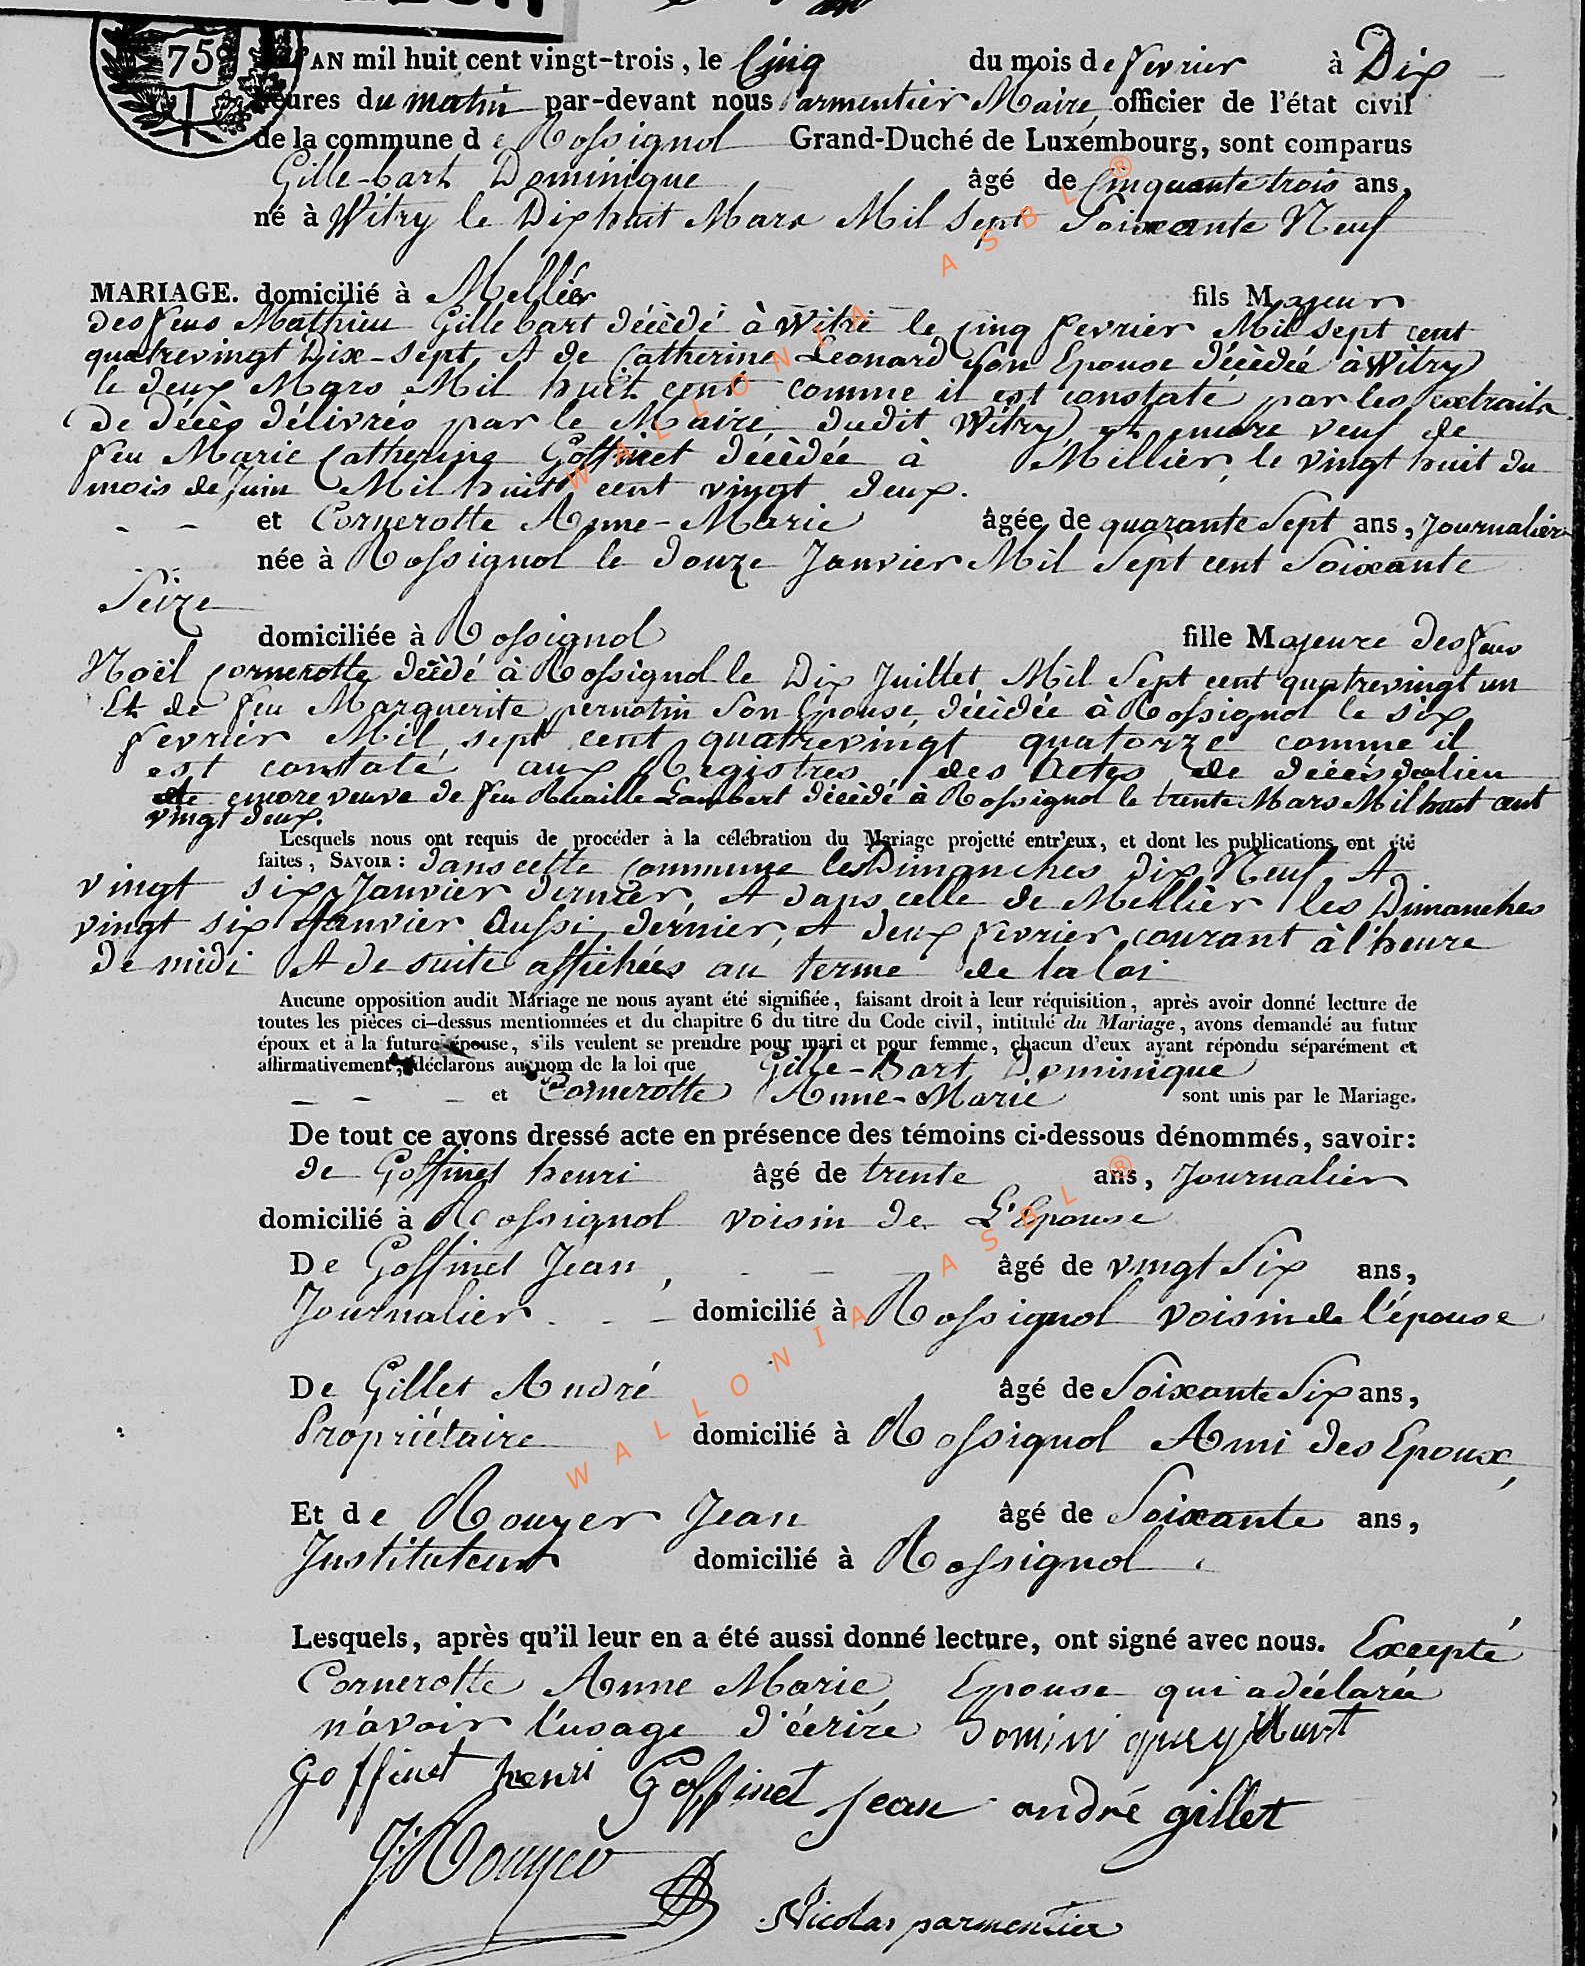 75
L'AN mil huit cent vingt-trois, le Cinq du mois de fevrier à Dix
heures du matin par-devant nous Parmentier Maire, officier de l'état civil
de la commune de Rossignol Grand-Duché de Luxembourg, sont comparus
Gille-bart Dominique âgé de Cinquante trois ans,
né à Witry le Dix huit Mars Mil Sept Soixante Neuf
MARIAGE. domicilié à Mellier fils Majeur
des feus Mathieu Gillebart décèdé à Witri le cinq fevrier Mil sept cent
quatrevingt Dix-sept, Et de Catherine Leonard Son Epouse décèdée à Witry
le deux Mars Mil huit cent comme il est constaté par les extraits
De décès délivrés par le Maire dudit Witry, et encore veuf de
feu Marie Catherine Goffinet décèdée à Mellier, le vingt huit du
mois de Juin Mil huit cent vingt deux.
et Cornerotte Anne-Marie âgée de quarante Sept ans, Journalier
née à Rossignol le douze Janvier Mil Sept cent Soixante
Seize
domiciliée à Rossignol fille Majeure des feus
Noël Cornerotte décèdé à Rossignol le Dix Juillet Mil Sept cent quatrevingt un
Et de feu Marguerite pernotin Son Epouse, décèdée à Rossignol le six
fevrier Mil sept cent quatrevingt quatorze comme il
est constaté aux Registres des Actes de décès du lieu
encore veuve de feu Lambert décèdé à Rossignol le trente Mars Mil huit cent
vingt deux.
Lesquels nous ont requis de procéder à la célébration du Mariage projetté entr'eux, et dont les publications ont été
faites, SAVOIR : dans cette commune les Dimanches Dix Neuf Et
vingt six Janvier dernier, Et dans celle de Mellier les Dimanches
vingt six Janvier Aussi dernier, Et deux fevrier courant à l'heure
de midi Et de suite affichées au terme de la loi
Aucune opposition audit Mariage ne nous ayant été signifiée, faisant droit à leur réquisition, après avoir donné lecture de
toutes les pièces ci-dessus mentionnées et du chapitre 6 du titre du Code civil, intitulé du Mariage, avons demandé au futur
époux et à la future épouse, s'ils veulent se prendre pour mari et pour femme, chacun d'eux ayant répondu séparément et
affirmativement, déclarons au nom de la loi que Gille-Bart Dominique
et Cornerotte Anne-Marie sont unis par le Mariage.
De tout ce avons dressé acte en présence des témoins ci-dessous dénommés, savoir:
de Goffinet henri âgé de trente ans, Journalier
domicilié à Rossignol voisin de L'Epouse
De Goffinet Jean, âgé de vingt Six ans,
Journalier domicilié à Rossignol voisin de l'épouse
De Gillet André âgé de Soixante Six ans,
Propriétaire domicilié à Rossignol Ami des Epoux,
Et de Rouyer Jean âgé de Soixante ans,
Instituteur domicilié à Rossignol.
Lesquels, après qu'il leur en a été aussi donné lecture, ont signé avec nous. Excepté
Cornerotte Anne Marie Epouse qui a déclarée
n'avoir l'usage d'écrire
Goffinet henri Goffinet jean andré gillet
J Rouyer
Nicolas parmentier
WALLONIA ASBL ®
WALLONIA ASBL ®